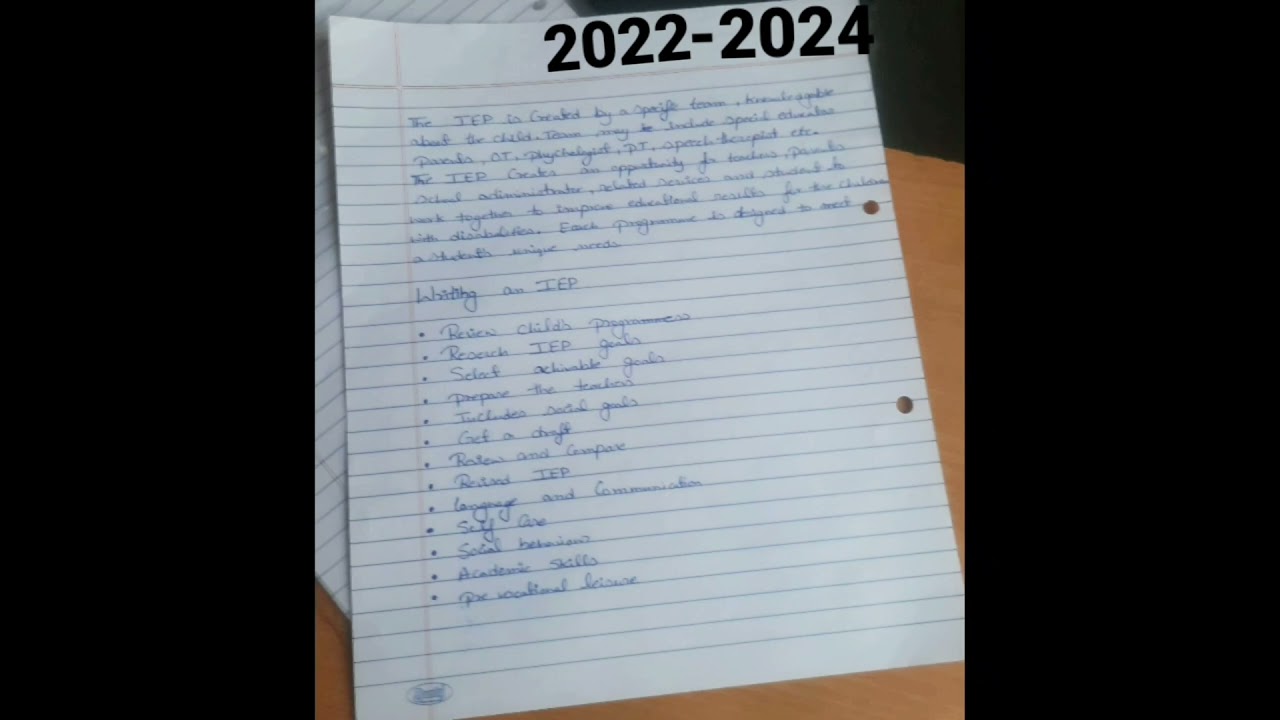 2022-2024
The IEP is Created by a specific team, knowledgable
about the child. Team may be include special educator
Parents, OT, Phychologist, PT, speech therapist etc.
The IEP Creates an oppurtunity for teachers, Parents
School adiministrator, related services and student to
work together to improve educational results for the
with disabilities. Each programme is designed to meet
a student's unique needs
Writing an IEP
• Review child's programmess
• Reserch IEP goals
• Select achivable goals
• prepare the teachers
• Includes social goals
• Get a draft
• Review and Compare
• Revised IEP
• Language and Communication
• Self Care
• Social behaviour
• Academic Skills
• Pre vocational leisure